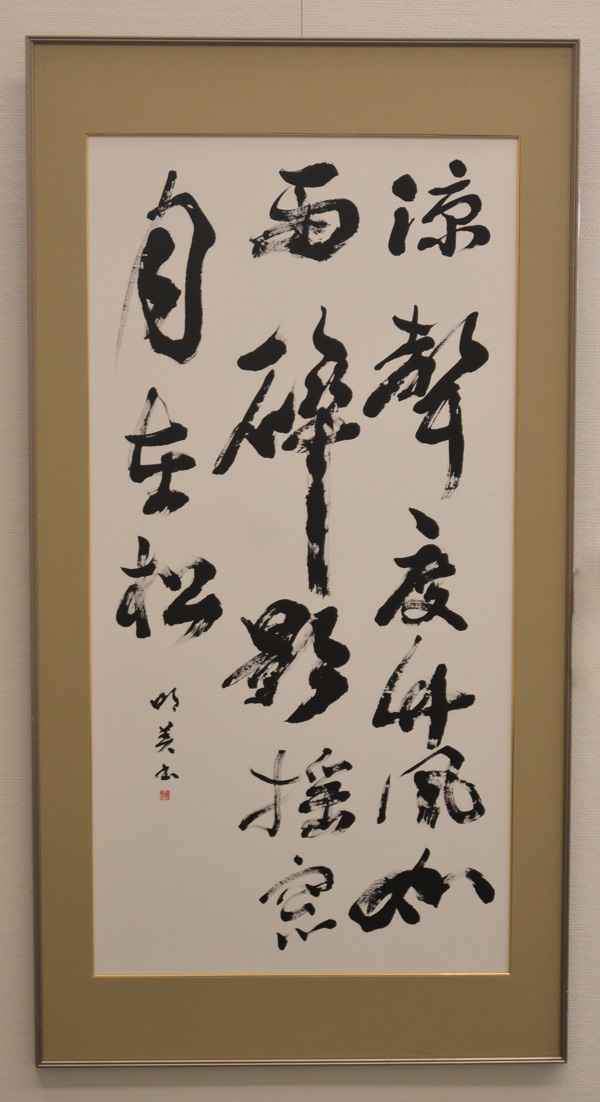 涼聲度竹風如
雨碎影搖窓
月在松
明英書